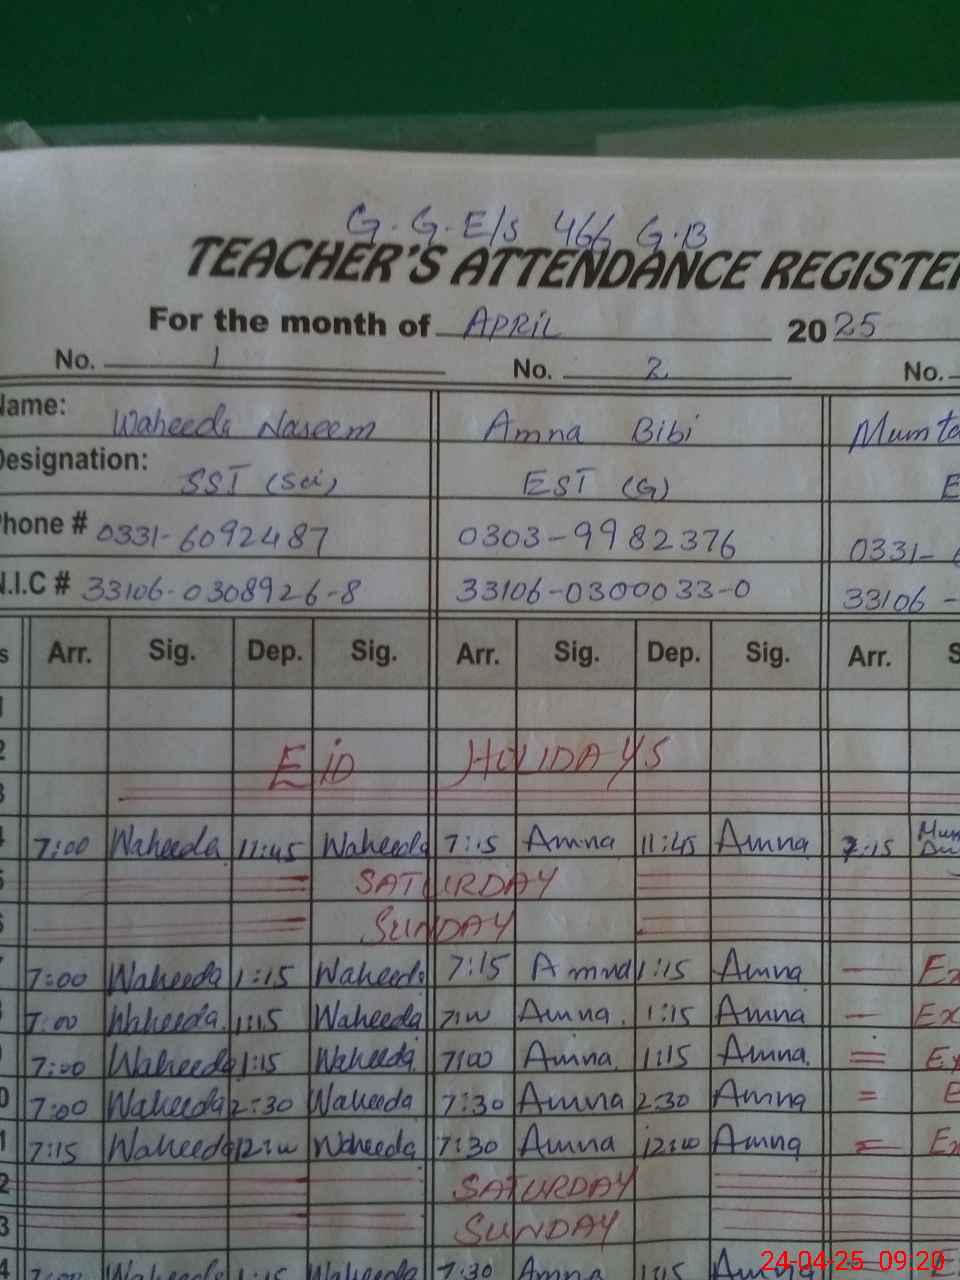 G.G.E/S 466 G.B
TEACHER'S ATTENDANCE REGISTE
For the month of APRIL 2025
No. 1 No. 2 No.
Name: Waheeda Naseem Amna Bibi Mumta
Designation: SST (Sci) EST (G) E
Phone # 0331-6092487 0303-9982376 0331-
N.I.C # 33106-0308926-8 33106-0300033-0 33106 -
s Arr. Sig. Dep. Sig. Arr. Sig. Dep. Sig. Arr. S
1
2 EiD HOLIDAYS
3
4 7:00 Waheeda 11:45 Waheeda 7:15 Amna 11:45 Amna 7:15 Mum
5 SATURDAY
6 SUNDAY
7 7:00 Waheeda 1:15 Waheeda 7:15 Amna 1:15 Amna — Ex
7:00 Waheeda 1:15 Waheeda 7:00 Amna 1:15 Amna — Ex
7:00 Waheeda 1:15 Waheeda 7:00 Amna 1:15 Amna = Ex
0 7:00 Waheeda 2:30 Waheeda 7:30 Amna 2:30 Amna = E
1 7:15 Waheeda 12:00 Waheeda 7:30 Amna 12:00 Amna = Ex
2 SATURDAY
3 SUNDAY
4 7:00 Waheeda 1:15 Waheeda 7:30 Amna 1:15 Amna
24-04-25 09:20